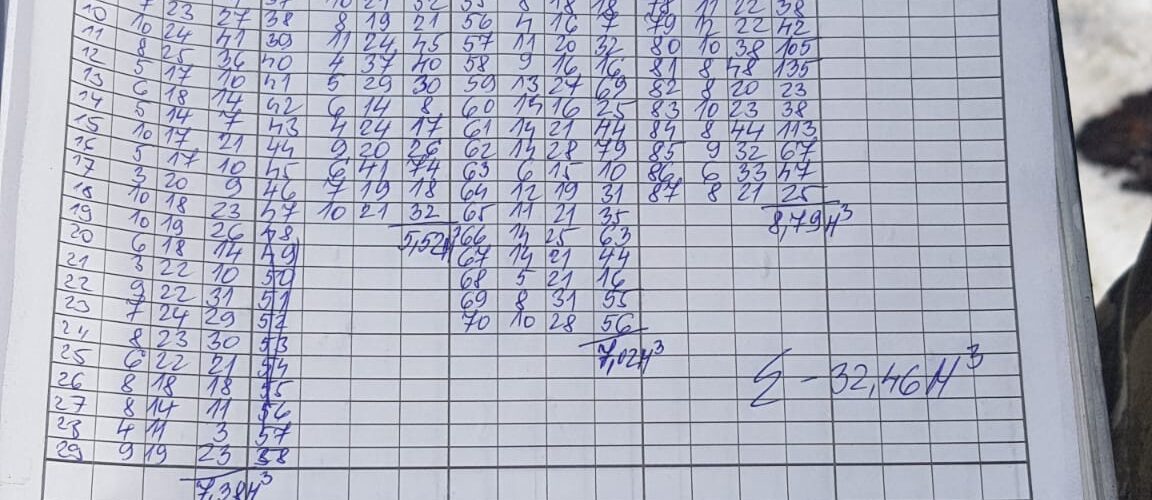 7 23 27 38 8 19 21 56 4 16 7 79 12 22 42
10 10 24 41 39 11 24 45 57 11 20 32 80 10 38 105
11 8 25 36 40 4 37 40 58 9 16 16 81 8 48 135
12 5 17 10 41 5 29 30 59 13 27 69 82 8 20 23
13 6 18 14 42 6 14 8 60 14 16 25 83 10 23 38
14 5 14 7 43 4 24 17 61 14 21 44 84 8 44 113
15 10 17 21 44 9 20 26 62 14 28 79 85 9 32 67
16 5 17 10 45 6 41 74 63 6 15 10 86 6 33 47
17 3 20 9 46 7 19 18 64 12 19 31 87 8 21 25
18 10 18 23 47 10 21 32 65 11 21 35 8,79м³
19 10 19 26 48 5,52м³ 66 14 25 63
20 6 18 14 49 67 14 21 44
21 3 22 10 50 68 5 21 16
22 9 22 31 51 69 8 31 55
23 7 24 29 52 70 10 28 56
24 8 23 30 53 7,02м³
25 6 22 21 54 Σ - 32,46м³
26 8 18 18 55
27 8 14 11 56
28 4 11 3 57
29 9 19 23 58
7,38м³